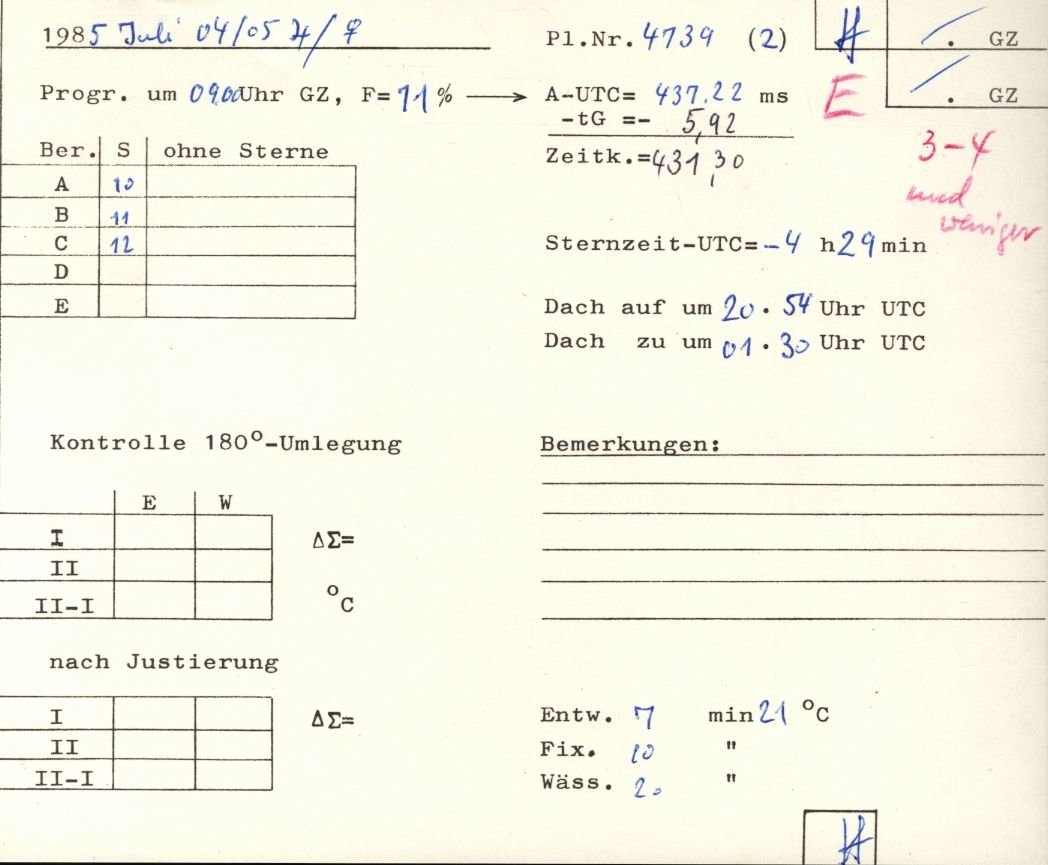 1985 Juli 04/05 ♃/♀
Pl.Nr. 4739 (2)
. GZ
Progr. um 09.00 Uhr GZ, F= 71 % → A-UTC= 437.22 ms
E
. GZ
-tG =- 5,92
Zeitk.=431,30
3-4
und
weniger
Ber. S ohne Sterne
A 10
B 11
C 12
D
E
Sternzeit-UTC= -4 h 29 min
Dach auf um 20 . 54 Uhr UTC
Dach zu um 01 . 30 Uhr UTC
Kontrolle 180°-Umlegung
Bemerkungen:
E W
I
II
II-I
ΔΣ=
°C
nach Justierung
I
II
II-I
ΔΣ=
Entw. 7 min 21 °C
Fix. 10 "
Wäss. 20 "